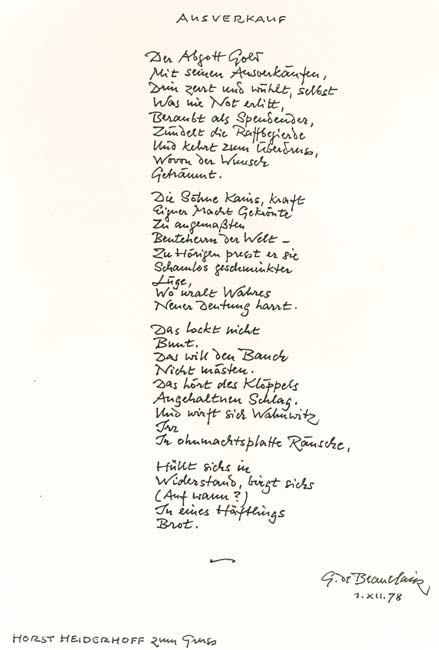 AUSVERKAUF
Der Abgott Gold
Mit seinen Ausverkäufen,
Drin zerrt und wühlt, selbst
Was nie Not erlitt,
Beraubt als Spendender,
Zündelt die Raffbegierde
Und kehrt zum Überdruss,
Wovon der Wunsch
Geträumt.
Die Söhne Kains, kraft
Eigner Macht Gekrönte
Zu angemaßten
Beuteherrn der Welt –
Zu Hörigen presst er sie
Schamlos geschminkter
Lüge,
Wo uralt Wahres
Neuer Deutung harrt.
Das lockt nicht
Bunt.
Das will den Bauch
Nicht mästen.
Das hört des Klöppels
Angehaltnen Schlag.
Und wirft sich Wahnwitz
Irr
In ohnmachtsplatte Räusche,
Hüllt sichs in
Widerstand, birgt sichs
(Auf wann?)
In eines Häftlings
Brot.
G. de Beauclair,
1.XII.78
HORST HEIDERHOFF zum Gruss